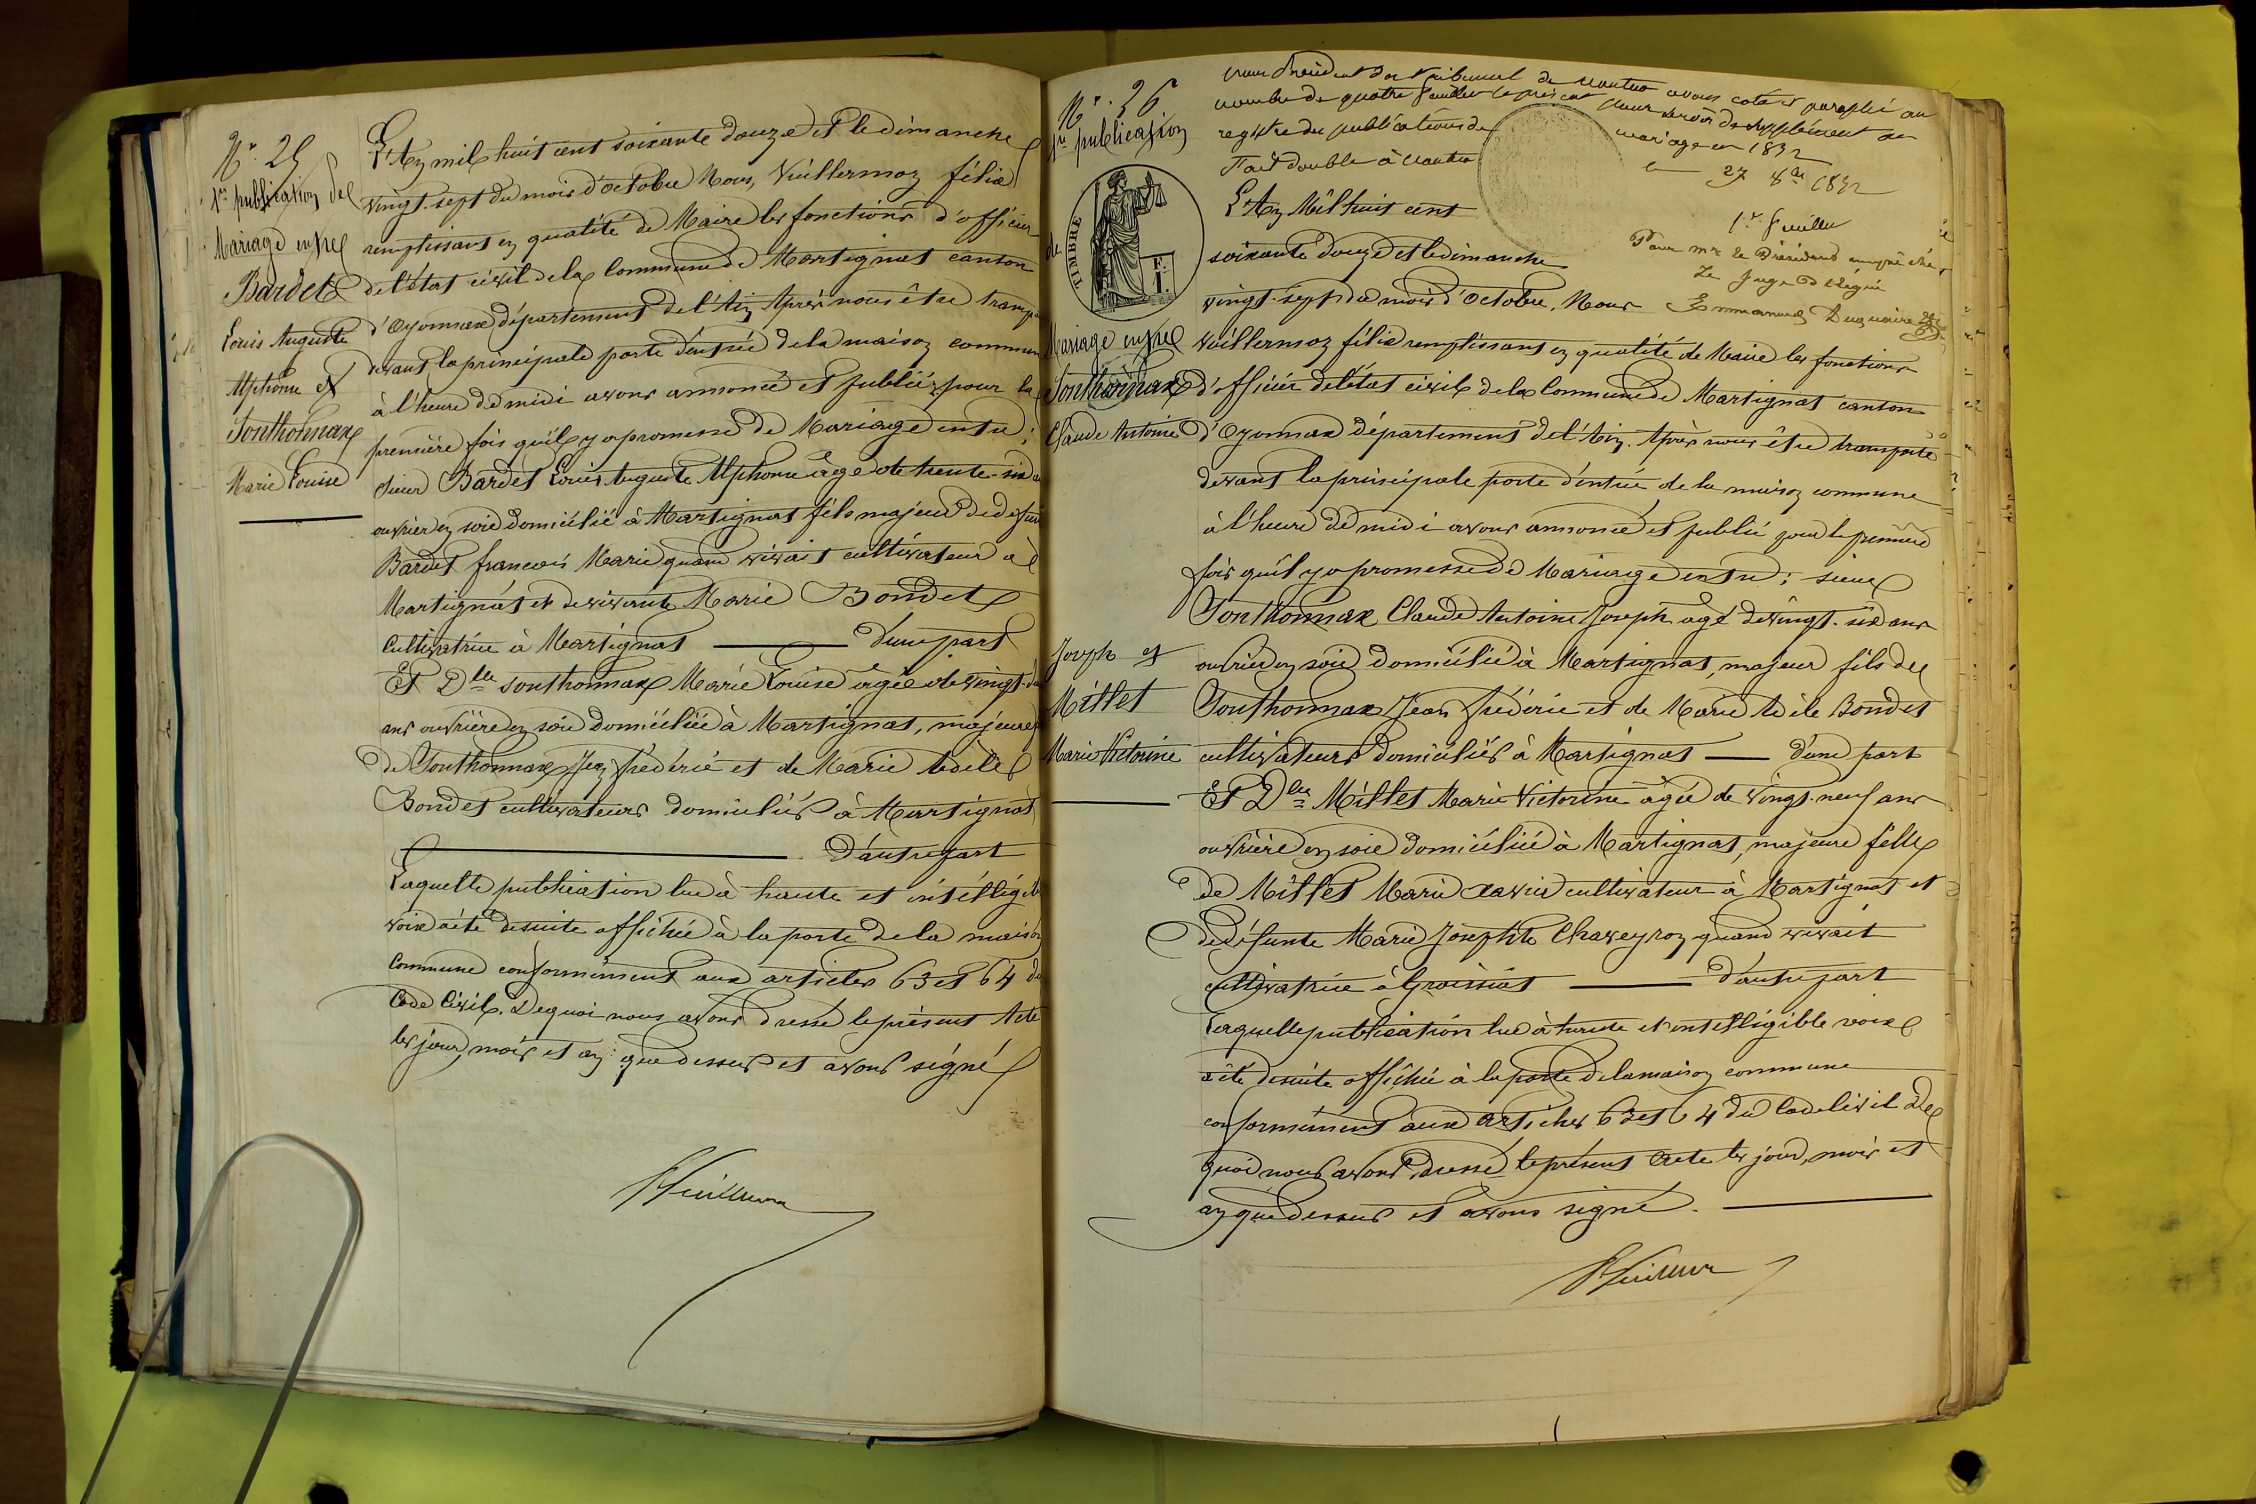 N° 25
1re publication de
Mariage entre
Bardet
Louis Auguste
Alphonse et
Sonthonnax
Marie Louise
L'An mil huit cent soixante douze et le dimanche
vingt-sept du mois d'octobre Nous, Vuillermoz félix
remplissant en qualité de Maire les fonctions d'officier
de l'état civil de la Commune de Martignat canton
d'Oyonnax département de l'Ain Après nous être transp
devant la principale porte d'entrée de la maison commun
à l'heure de midi avons annoncé et publié pour la
première fois qu'il y a promesse de Mariage entre ;
Sieur Bardet Louis Auguste Alphonse âgé de trente-six a
ouvrier en soie domicilié à Martignat fils majeur de defunt
Bardet françois Marie quand vivait cultivateur à
Martignat et de vivante Marie Bondet
Cultivatrice à Martignat d'une part
Et Dlle Sonthonnax Marie Louise âgée de vingt-
ans ouvrière en soie domiciliée à Martignat, majeure
de Sonthonnax Jean frédéric et de Marie Adèle
Bondet cultivateurs domiciliés à Martignat
D'autre part
Laquelle publication lue à haute et intélligib
voix a été desuite affichée à la porte de la maison
Commune conformément aux articles 63 et 64 du
Code Civil. Dequoi nous avons dressé le présent Acte
les jour, mois et an que dessus et avons signé
Vuillermoz
N° 26
1re publication
de
TIMBRE
F. 1.
Mariage entre
Sonthonnax
Claude Antoine
Joseph et
Millet
Marie Victorine
Nous Président du Tribunal de Nantua avons coté et paraphé au
nombre de quatre feuilles le présent pour servir de supplément au
registre des publications de mariage en 1872
Fait double à Nantua le 27 8bre 1872
1re feuille
Pour Mr le Président empêché,
Le Juge Délégué
L'An Mil huit cent
soixante douze et le dimanche
vingt-sept du mois d'Octobre. Nous
Vuillermoz félix remplissant en qualité de Maire les fonctions
d'officier de l'état civil de la Commune de Martignat canton
d'Oyonnax département de l'Ain. Après nous être transporté
devant la principale porte d'entrée de la maison commune
à l'heure de midi avons annoncé et publié pour la première
fois qu'il y a promesse de Mariage entre ; sieur
Sonthonnax Claude Antoine Joseph âgé de vingt-six ans
ouvrier en soie domicilié à Martignat, majeur fils de
Sonthonnax Jean frédéric et de Marie Adèle Bondet
cultivateurs domiciliés à Martignat d'une part
Et Dlle Millet Marie Victorine âgée de vingt-neuf ans
ouvrière en soie domiciliée à Martignat, majeure fille
de Millet Marie Xavier cultivateur à Martignat et
de défunte Marie Josephte Chaveyron quand vivait
cultivatrice à Groissiat d'autre part
Laquelle publication lue à haute et intelligible voix
a été desuite affichée à la porte de la maison commune
conformément aux articles 63 et 64 du Code Civil De
quoi nous avons dressé le présent Acte les jour, mois et
an que dessus et avons signé.
Vuillermoz